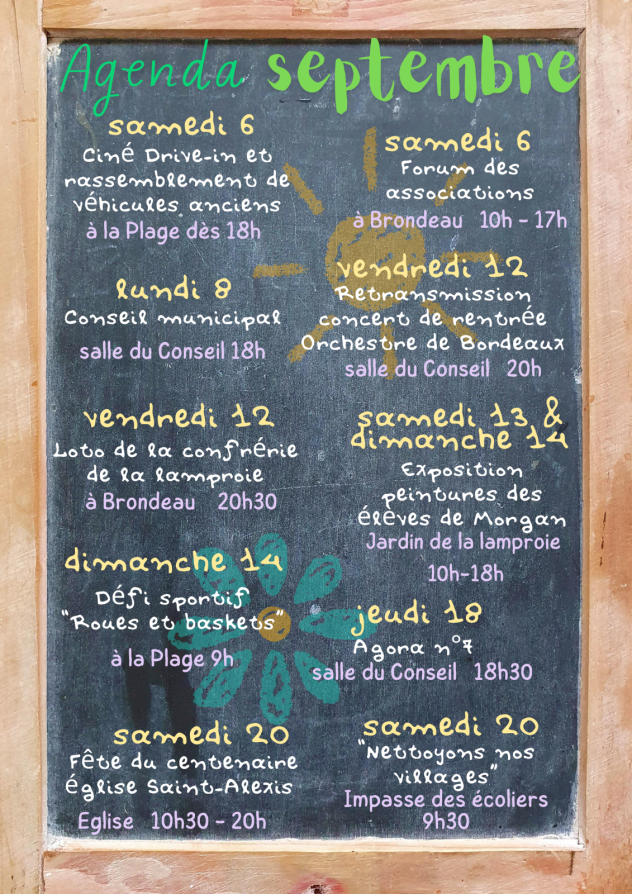 Agenda septembre
samedi 6
Ciné Drive-in et
rassemblement de
véhicules anciens
à la Plage dès 18h
samedi 6
Forum des
associations
à Brondeau 10h - 17h
lundi 8
Conseil municipal
salle du Conseil 18h
vendredi 12
Retransmission
concert de rentrée
Orchestre de Bordeaux
salle du Conseil 20h
vendredi 12
Loto de la confrérie
de la lamproie
à Brondeau 20h30
samedi 13 &
dimanche 14
Exposition
peintures des
élèves de Morgan
Jardin de la lamproie
10h-18h
dimanche 14
Défi sportif
"Roues et baskets"
à la Plage 9h
jeudi 18
Agora n°7
salle du Conseil 18h30
samedi 20
Fête du centenaire
église Saint-Alexis
Eglise 10h30 - 20h
samedi 20
"Nettoyons nos
villages"
Impasse des écoliers
9h30